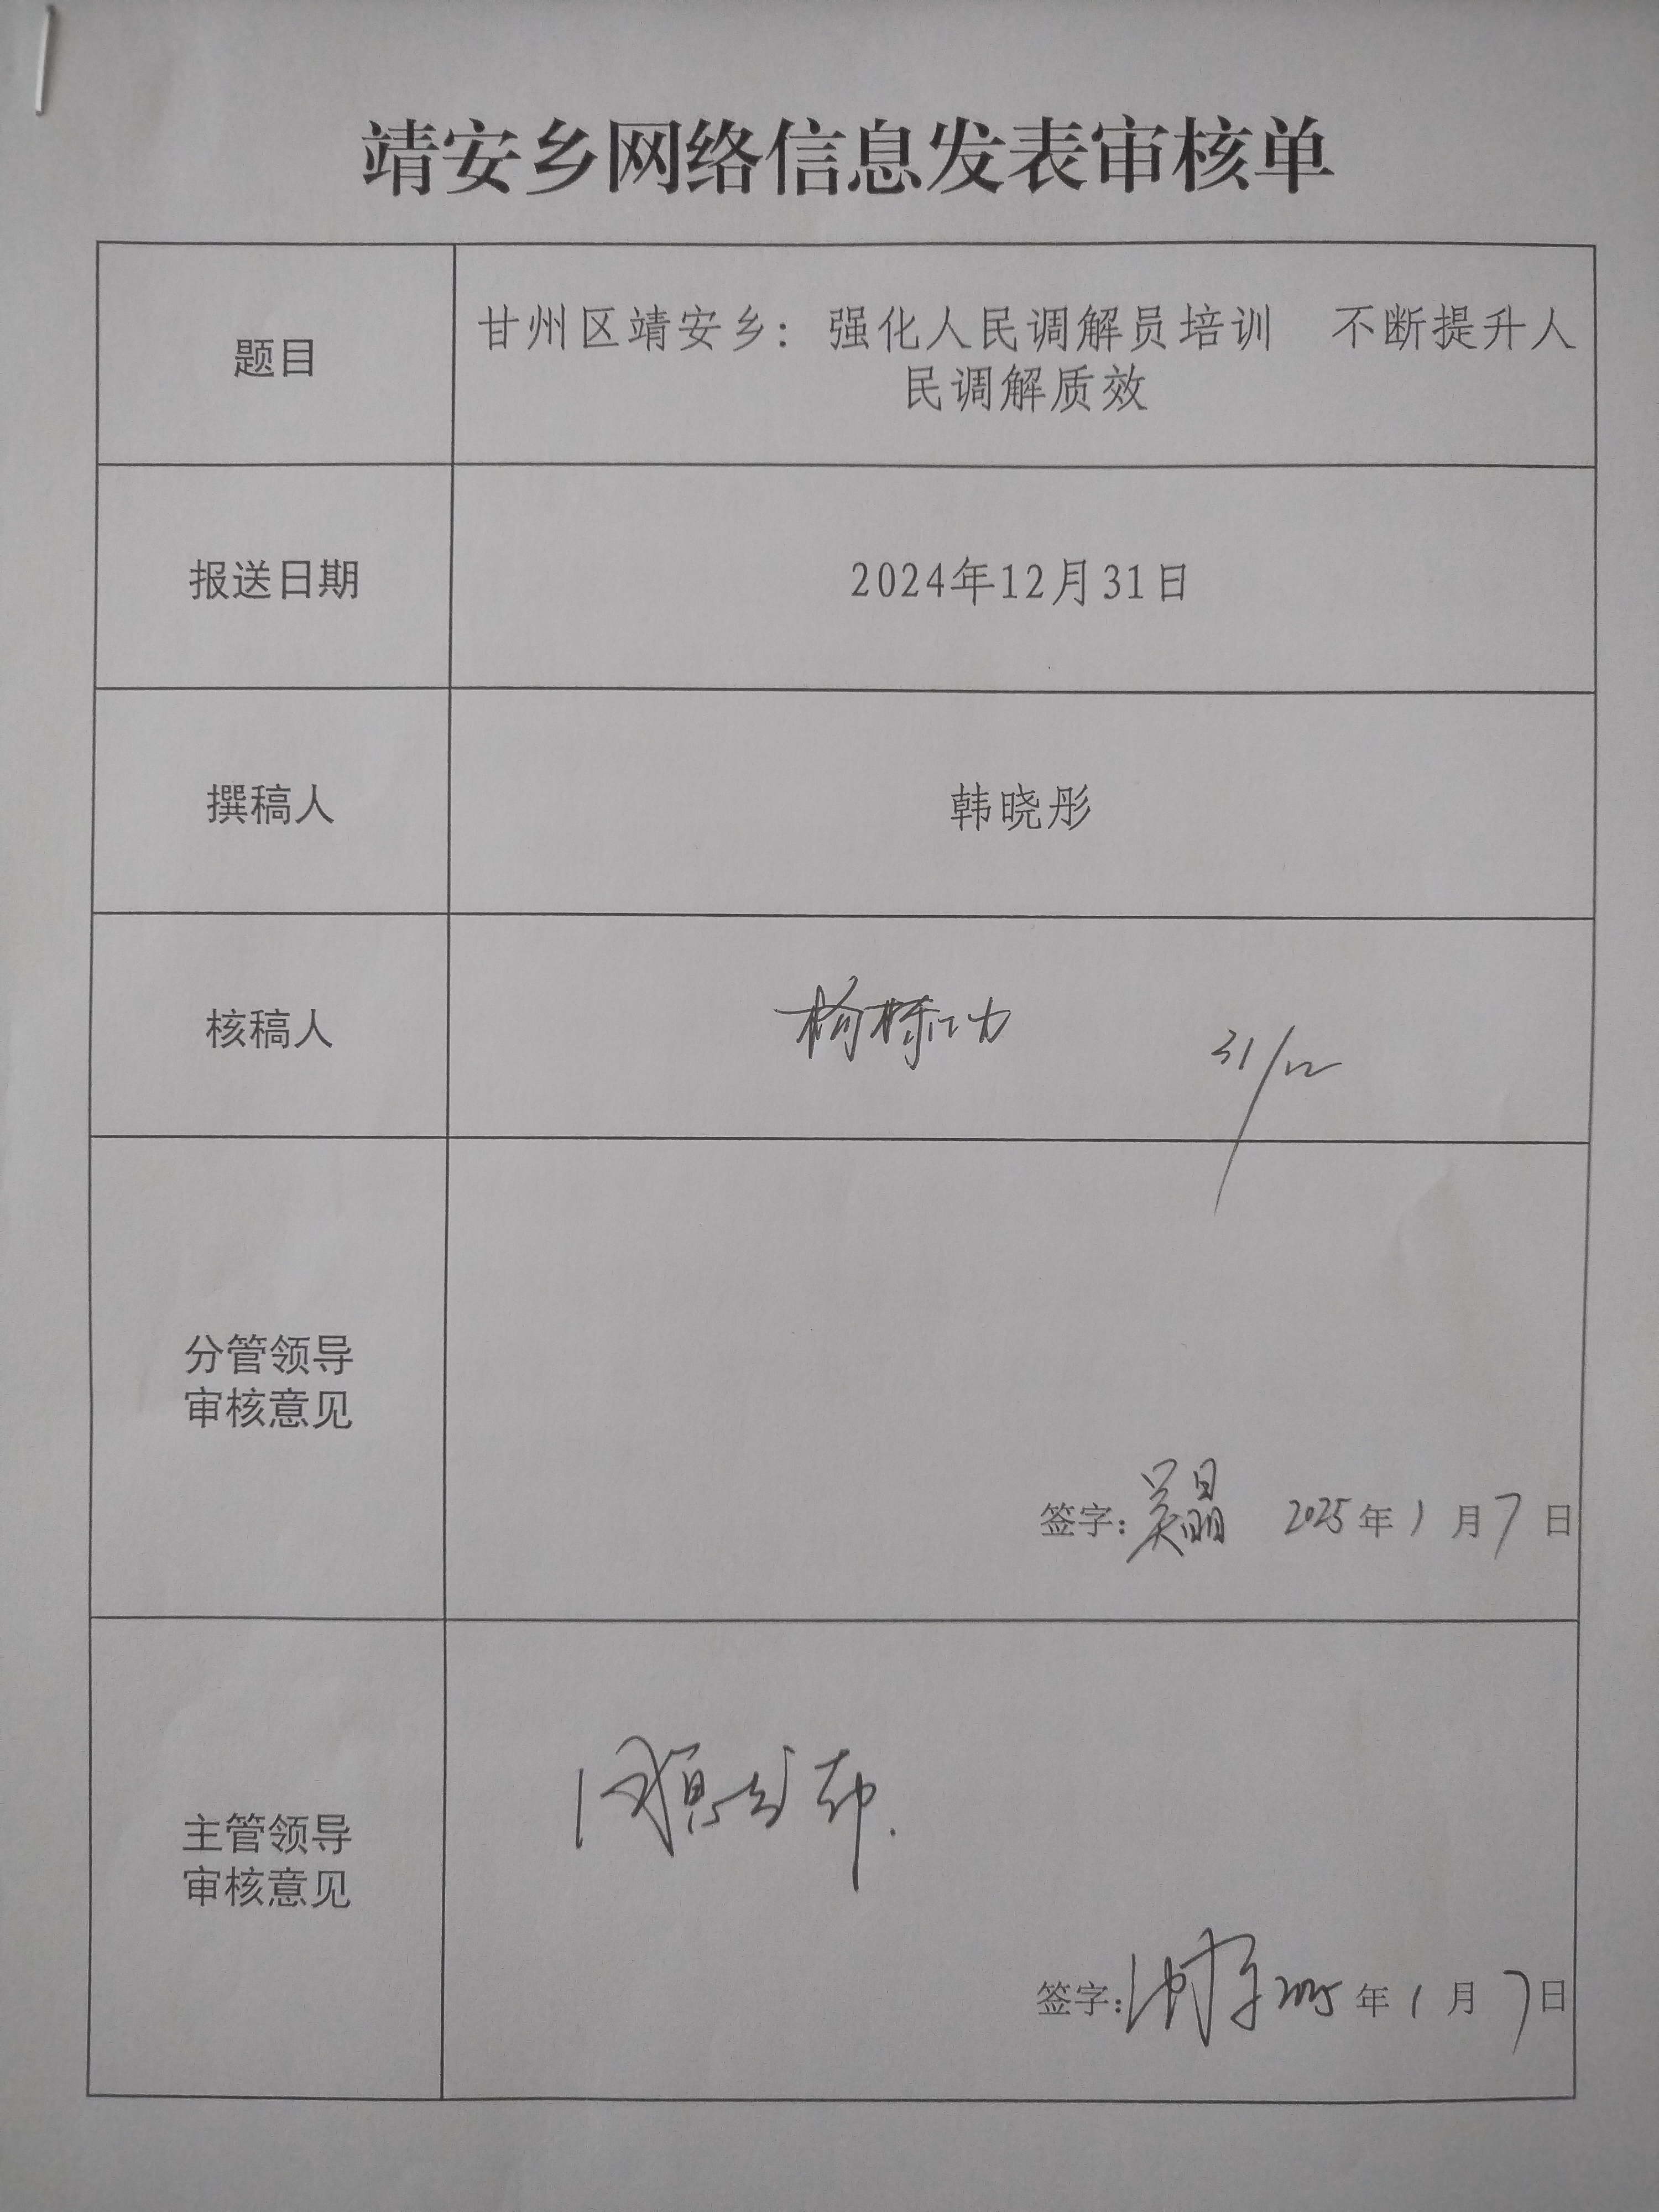 靖安乡网络信息发表审核单
题目
甘州区靖安乡：强化人民调解员培训 不断提升人
民调解质效
报送日期
2024年12月31日
撰稿人
韩晓彤
核稿人
杨栋功 31/12
分管领导
审核意见
签字：吴晶 2025年1月7日
主管领导
审核意见
签字： 2025年1月7日